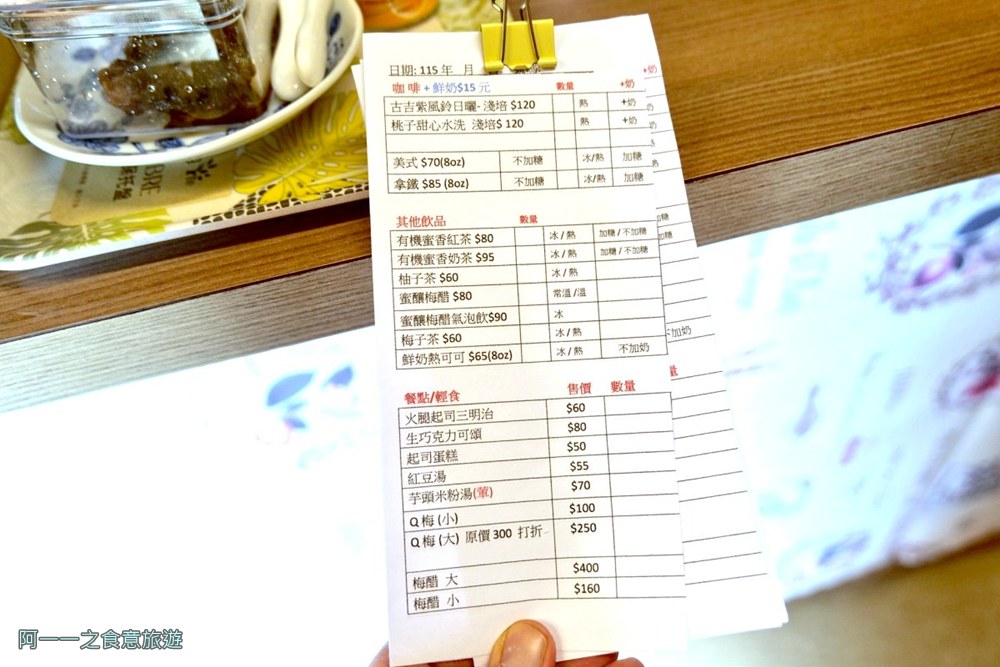 日期: 115 年 月
咖啡 + 鮮奶$15 元 數量 +奶
古吉紫風鈴日曬- 淺培 $120 熱 +奶
桃子甜心水洗 淺培$ 120 熱 +奶
美式 $70(8oz) 不加糖 冰/熱 加糖
拿鐵 $85 (8oz) 不加糖 冰/熱 加糖
其他飲品 數量
有機蜜香紅茶 $80 冰 / 熱 加糖 / 不加糖
有機蜜香奶茶 $95 冰 / 熱 加糖 / 不加糖
柚子茶 $60 冰 / 熱
蜜釀梅醋 $80 常溫 /溫
蜜釀梅醋氣泡飲$90 冰
梅子茶 $60 冰 / 熱
鮮奶熱可可 $65(8oz) 冰 / 熱 不加奶
餐點/輕食 售價 數量
火腿起司三明治 $60
生巧克力可頌 $80
起司蛋糕 $50
紅豆湯 $55
芋頭米粉湯(葷) $70
Q 梅 (小) $100
Q 梅 (大) 原價 300 打折 $250
梅醋 大 $400
梅醋 小 $160
阿一一之食意旅遊